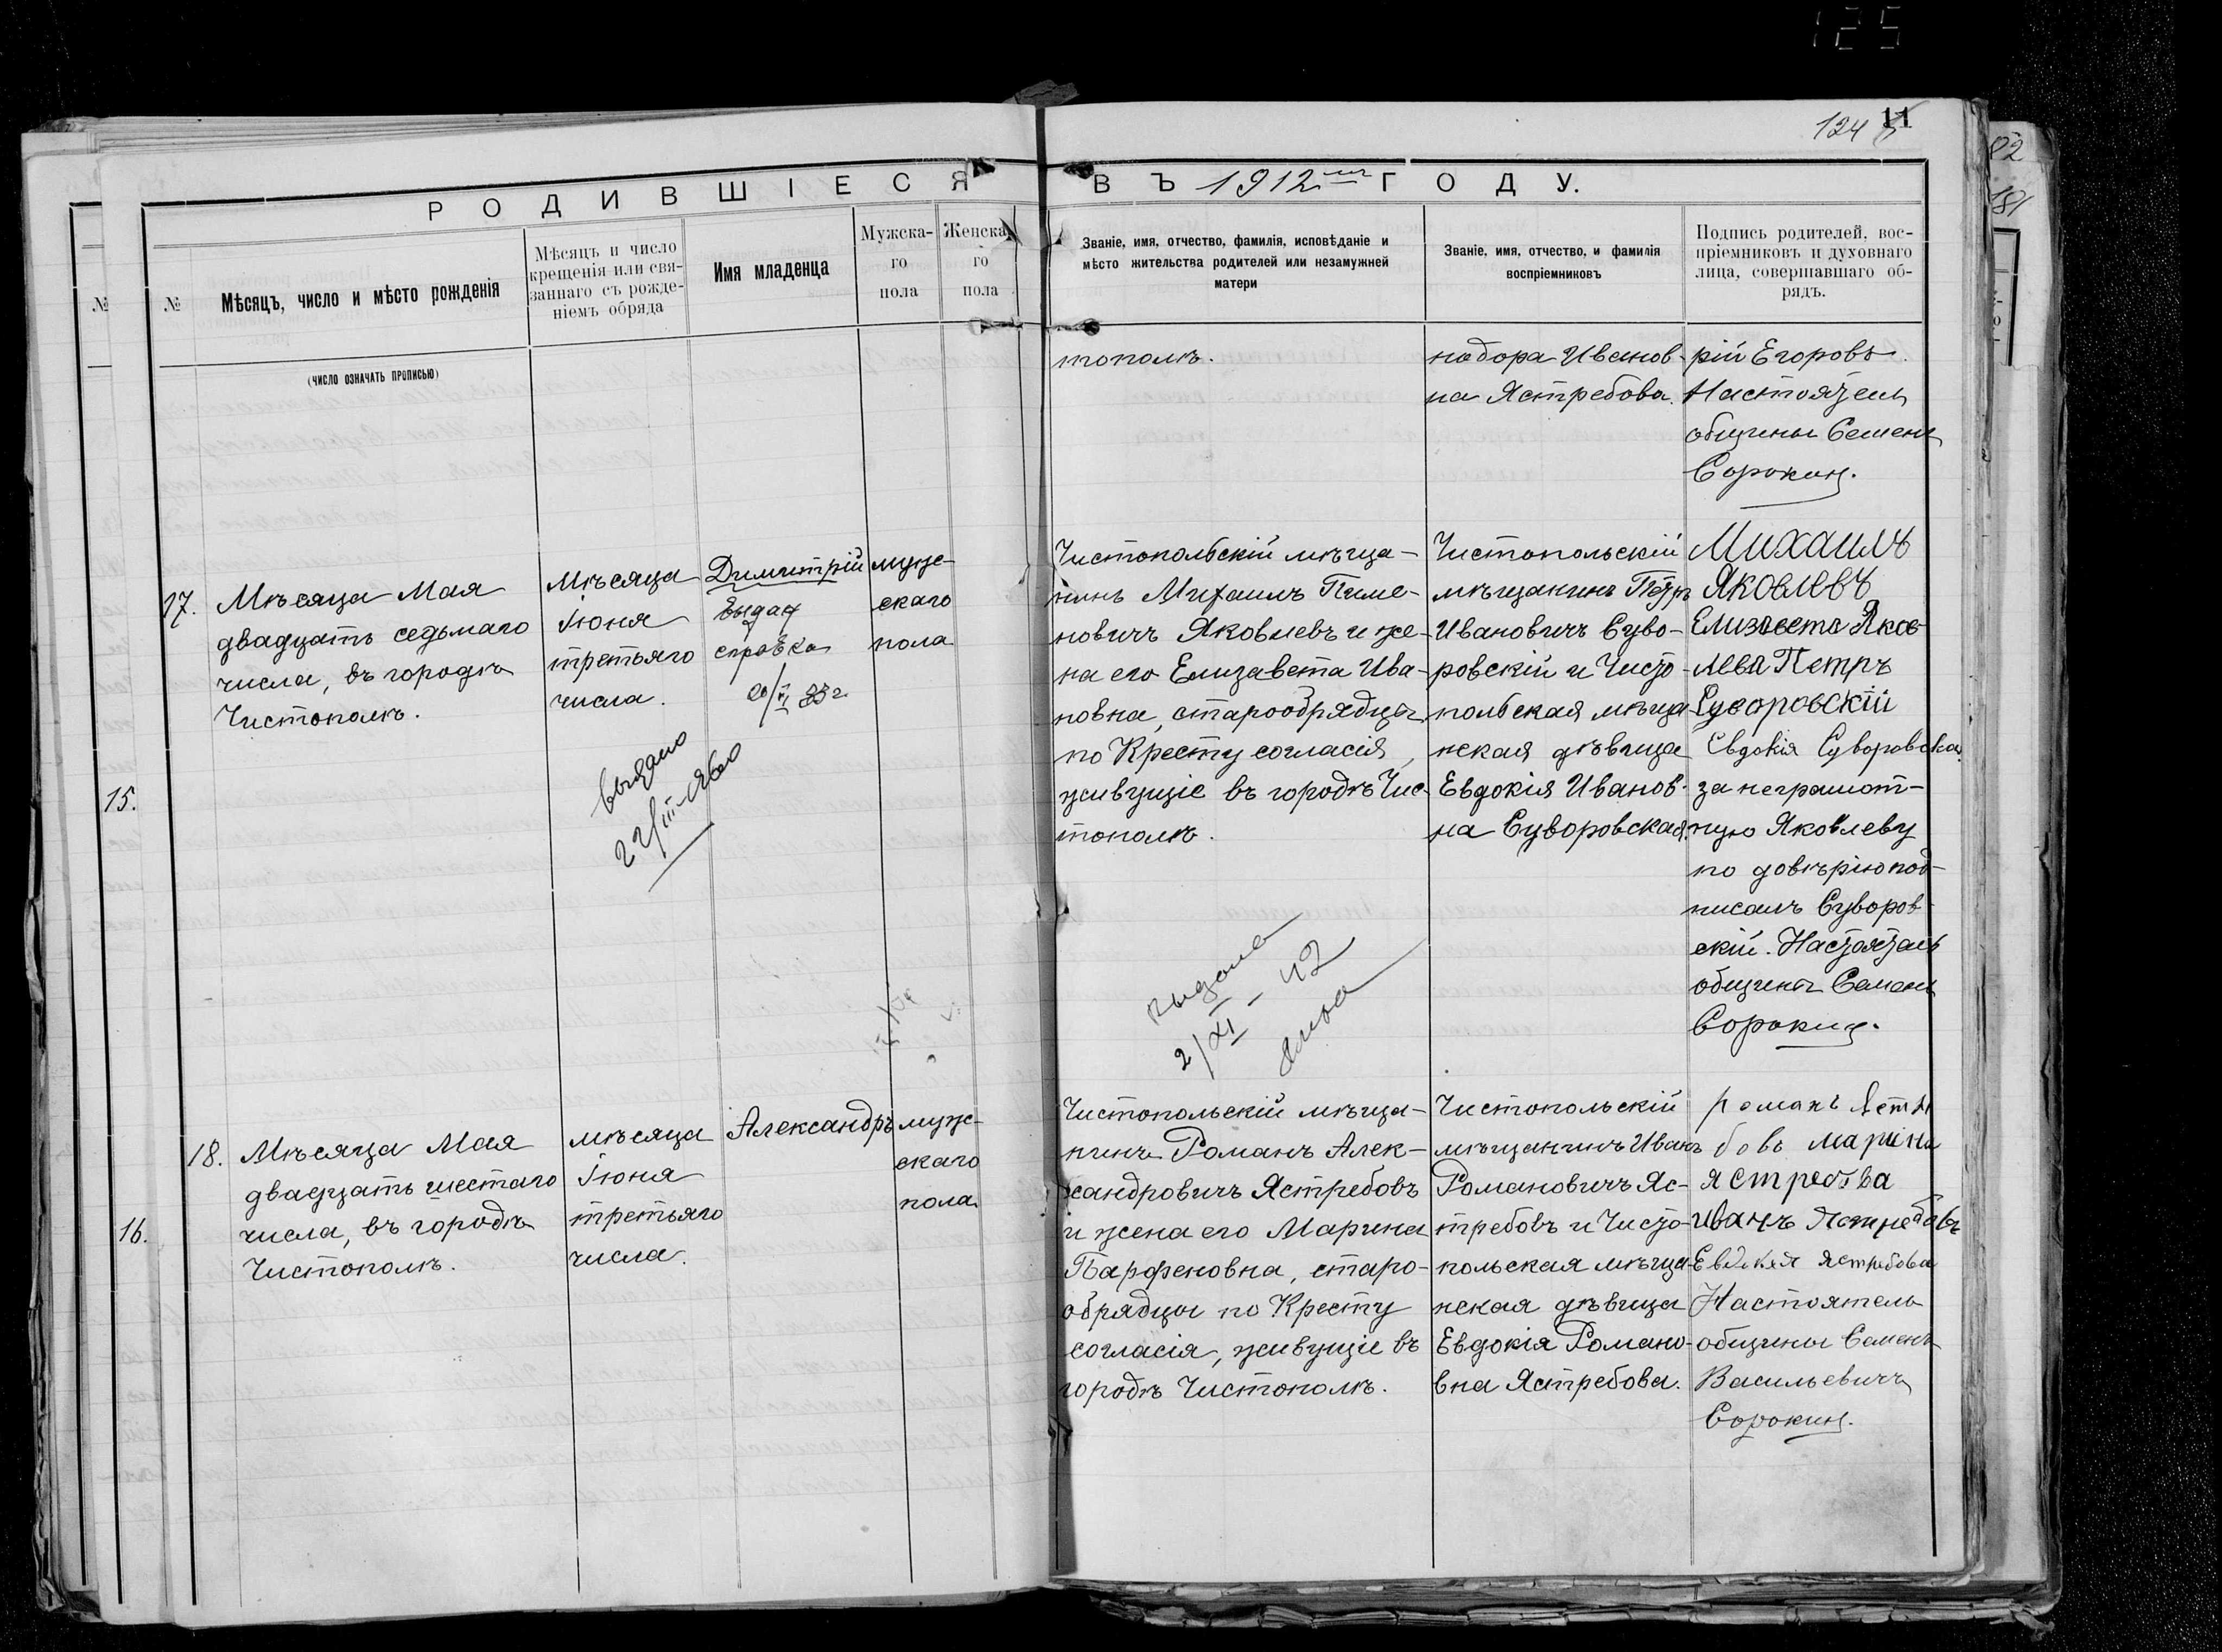 125
124
11
82
181
РОДИВШІЕСЯ ВЪ 1912 ГОДУ.
№
№
Мѣсяцъ, число и мѣсто рожденія
Мѣсяцъ и число
крещенія или свя-
заннаго съ рожде-
ніемъ обряда
Имя младенца
Мужска-
го
пола
Женска
го
пола
Званіе, имя, отчество, фамилія, исповѣданіе и
мѣсто жительства родителей или незамужней
матери
Званіе, имя, отчество, и фамилія
воспріемниковъ
Подпись родителей, вос-
пріемниковъ и духовнаго
лица, совершавшаго об-
рядъ.
(ЧИСЛО ОЗНАЧАТЬ ПРОПИСЬЮ)
тополѣ.
Иванов-
на Ястребова.
рій Егоровъ
Настоятель
общины Семенъ
Сорокин.
17.
Мѣсяца Мая
двадцать седьмаго
числа, въ городѣ
Чистополѣ.
Мѣсяца
Іюня
третьяго
числа.
Димитрій
выдан
справка
муже-
скаго
пола
выдано
15.
Чистопольскій мѣща-
нинъ Михаилъ Пиме-
новичъ Яковлевъ и же-
на его Елизавета Ива-
новна, старообрядцы
по Кресту согласія,
живущіе въ городѣ Чис-
тополѣ.
выдано
2/XI - 42
Чистопольскій
мѣщанинъ Петръ
Ивановичъ Суво-
ровскій и Чисто-
польская мѣща-
нская дѣвица
Евдокія Иванов-
на Суворовская.
Михаилъ
Яковлевъ
Елизавета Яков-
лева Петръ
Суворовскій
Евдокія Суворовская
за неграмот-
ную Яковлеву
по довѣрію под-
писалъ Суворов-
скій. Настоятель
общины Семенъ
Сорокин.
18.
Мѣсяца Мая
двадцать шестаго
числа, въ городѣ
Чистополѣ.
мѣсяца
Іюня
третьяго
числа.
Александръ
муже-
скаго
пола
16.
Чистопольскій мѣща-
нинъ Романъ Алек-
сандровичъ Ястребовъ
и жена его Марина
Парфеновна, старо-
обрядцы по Кресту
согласія, живущіе въ
городѣ Чистополѣ.
Чистопольскій
мѣщанинъ Иванъ
Романовичъ Яс-
требовъ и Чисто-
польская мѣща-
нская дѣвица
Евдокія Романо-
вна Ястребова.
романъ
бовъ марина
Иванъ Ястребовъ
Ястребова
Настоятель
общины Семенъ
Васильевичъ
Сорокин.